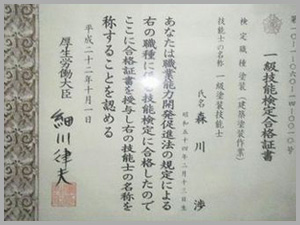 一級技能検定合格証書
検定職種 塗装(建築塗装作業)
技能士の名称 一級塗装技能士
氏名 森川 渉
昭和五十四年二月十三日生
あなたは職業能力開発促進法の規定による
右の職種に係る技能検定に合格したので
ここに合格証書を授与し右の技能士の名称を
称することを認める
平成二十二年十月一日
厚生労働大臣
細川律夫